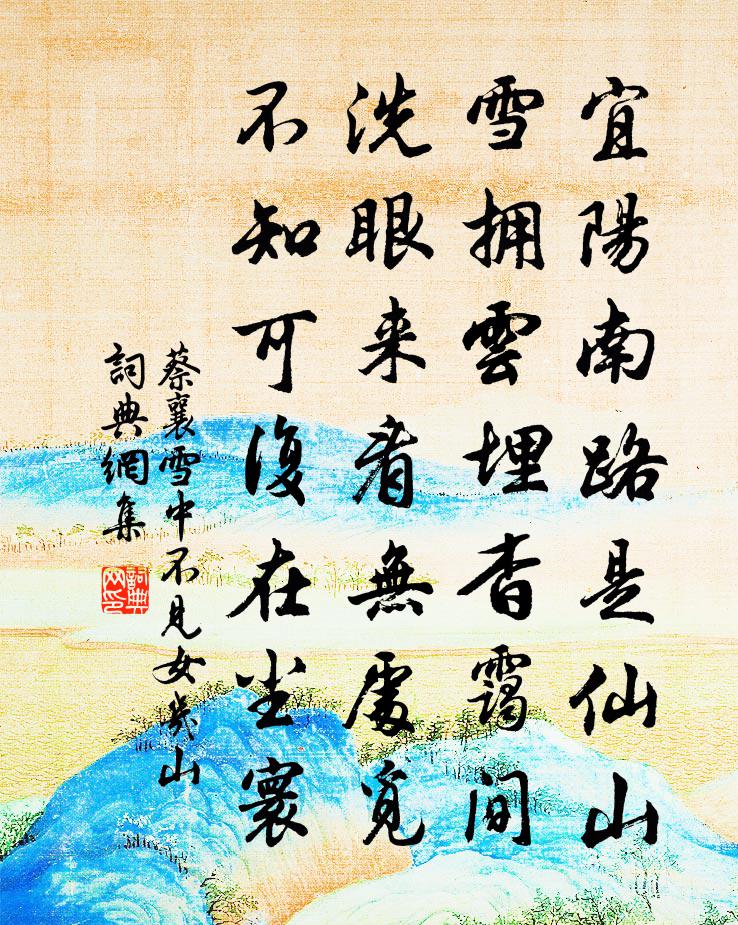 宜陽南路是仙山
雪擁雲埋杳靄間
洗眼来看無處覓
不知可復在尘寰
蔡襄雪中不見女幾山
詞典網集
詞典網印